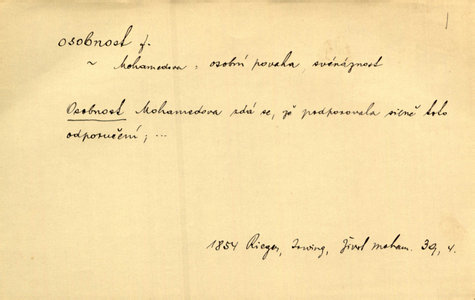 osobnost f.
~ Mohamedova, osobní povaha, svéráznost
Osobnost Mohamedova zdá se, že podporovala silně toto
odporučení; ...
1854 Rieger, Irwing, Život Moham. 39, 4.